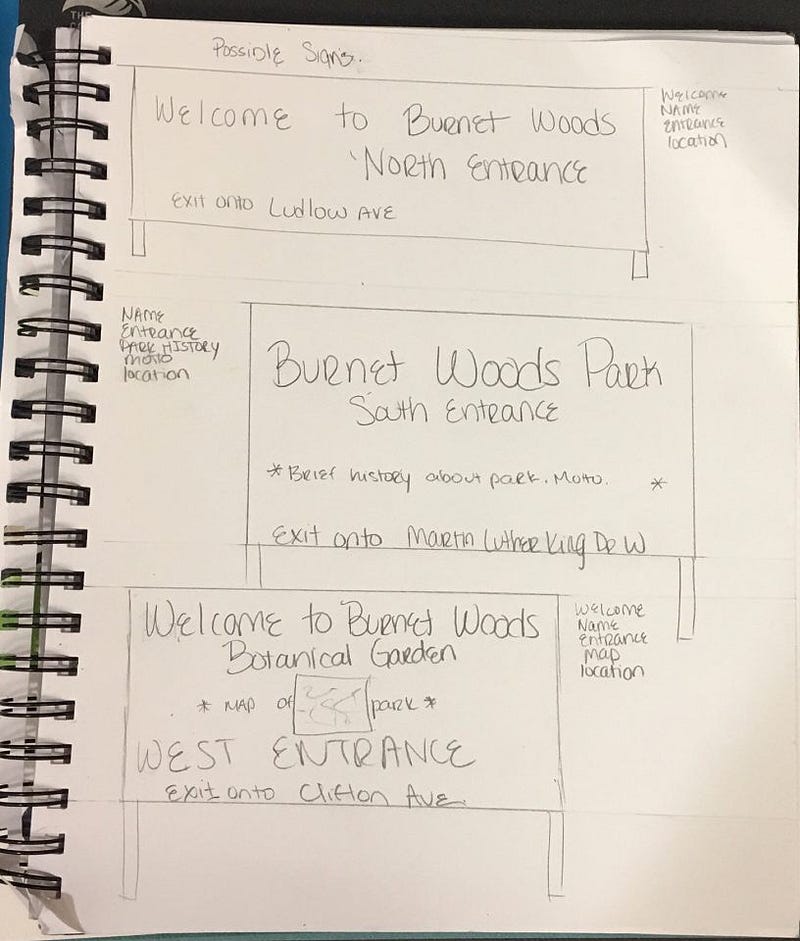 THE
Possible Signs.
Welcome to Burnet Woods
North Entrance
Exit onto Ludlow Ave
Welcome
Name
Entrance
location
Name
Entrance
Park History
Motto
location
Burnet Woods Park
South Entrance
* Brief history about park. Motto. *
Exit onto Martin Luther King Dr W
Welcome to Burnet Woods
Botanical Garden
* Map of park *
WEST ENTRANCE
Exit onto Clifton Ave.
Welcome
Name
Entrance
Map
location